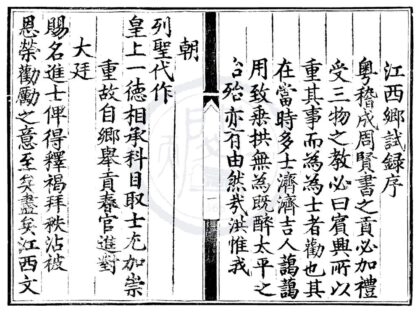 江西鄉試録序
粤稽成周賢書之貢必加禮
受三物之教必曰賓興所以
重其事而為為士者勸也其
在當時多士濟濟吉人藹藹
用致垂拱無為既醉太平之
治殆亦有由然哉洪惟我
朝
列聖代作
皇上一徳相承科目取士尤加崇
重故自鄉舉貢春官進對
大廷
賜名進士俾得釋褐拜秩沾被
恩榮勸勵之意至矣盡矣江西文